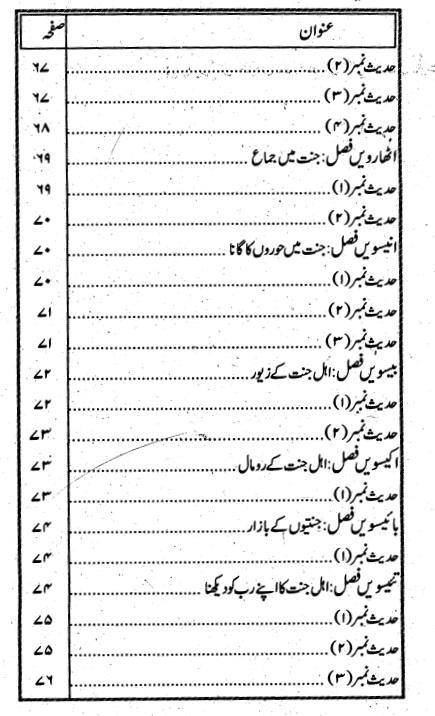 عنوان صفحہ
حدیث نمبر (۲) ........ ۶۷
حدیث نمبر (۳) ........ ۶۷
حدیث نمبر (۴) ........ ۶۸
اٹھارویں فصل: جنت میں جماع ........ ۶۹
حدیث نمبر (۱) ........ ۶۹
حدیث نمبر (۲) ........ ۷۰
انیسویں فصل: جنت میں حوروں کا گانا ........ ۷۰
حدیث نمبر (۱) ........ ۷۰
حدیث نمبر (۲) ........ ۷۱
حدیث نمبر (۳) ........ ۷۱
بیسویں فصل: اہل جنت کے زیور ........ ۷۲
حدیث نمبر (۱) ........ ۷۲
حدیث نمبر (۲) ........ ۷۳
اکیسویں فصل: اہل جنت کے رومال ........ ۷۳
حدیث نمبر (۱) ........ ۷۳
بائیسویں فصل: جنتیوں کے بازار ........ ۷۴
حدیث نمبر (۱) ........ ۷۴
تئیسویں فصل: اہل جنت کا اپنے رب کو دیکھنا ........ ۷۴
حدیث نمبر (۱) ........ ۷۵
حدیث نمبر (۲) ........ ۷۵
حدیث نمبر (۳) ........ ۷۶